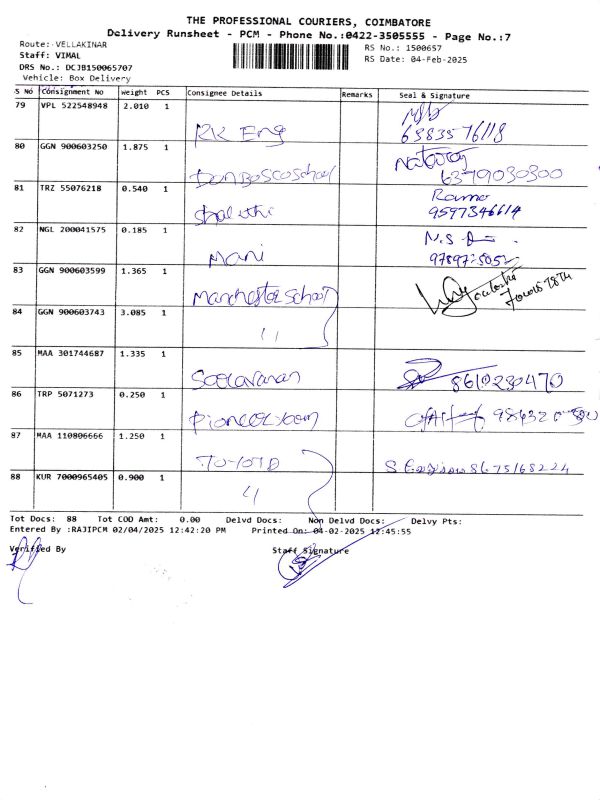 THE PROFESSIONAL COURIERS, COIMBATORE
Delivery Runsheet - PCM - Phone No.:0422-3505555 - Page No.:7
Route: VELLAKINAR
RS No.: 1500657
Staff: VIMAL
RS Date: 04-Feb-2025
DRS No.: DCJB150065707
Vehicle: Box Delivery
S No Consignment No Weight PCS Consignee Details Remarks Seal & Signature
79 VPL 522548948 2.010 1
RK Eng 6383576118
80 GGN 900603250 1.875 1
Don Bosco School 6379030300
81 TRZ 55076218 0.540 1 Rama
9597346614
82 NGL 200041575 0.185 1 N.S
Mani
83 GGN 900603599 1.365 1
Manchester School
84 GGN 900603743 3.085 1
11
85 MAA 301744687 1.335 1
Saravanan 8610230470
86 TRP 5071273 0.250 1
Pioneer
87 MAA 110806666 1.250 1
8675168224
88 KUR 7000965405 0.900 1
4
Tot Docs: 88 Tot COD Amt: 0.00 Delvd Docs: Non Delvd Docs: Delvy Pts:
Entered By :RAJIPCM 02/04/2025 12:42:20 PM Printed On: 04-02-2025 12:45:55
Verified By Staff Signature